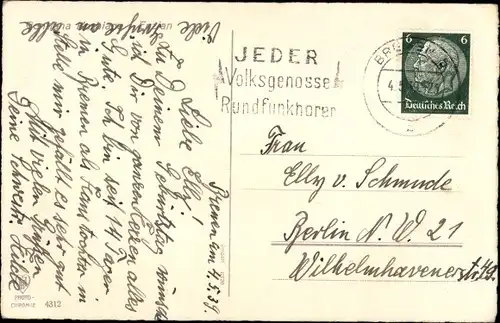 Bremen am 4.5.39.
Liebe Elly!
Zu Deinem Geburtstag wünsche
ich Dir von ganzem Herzen alles
Gute. Ich bin seit 14 Tagen
in Bremen als Haustochter in
Stelle mir gefällt es sehr gut
Mit vielen Grüßen
Deine Schwester
Viele
Grüße an
JEDER
Volksgenosse
Rundfunkhörer
BREMEN
4.5.
6 6
Deutsches Reich
Frau
Elly v. Schmude
Berlin N. W. 21
Wilhelmhavenerstr. 49.
PHOTO-
CHROMIE 4312